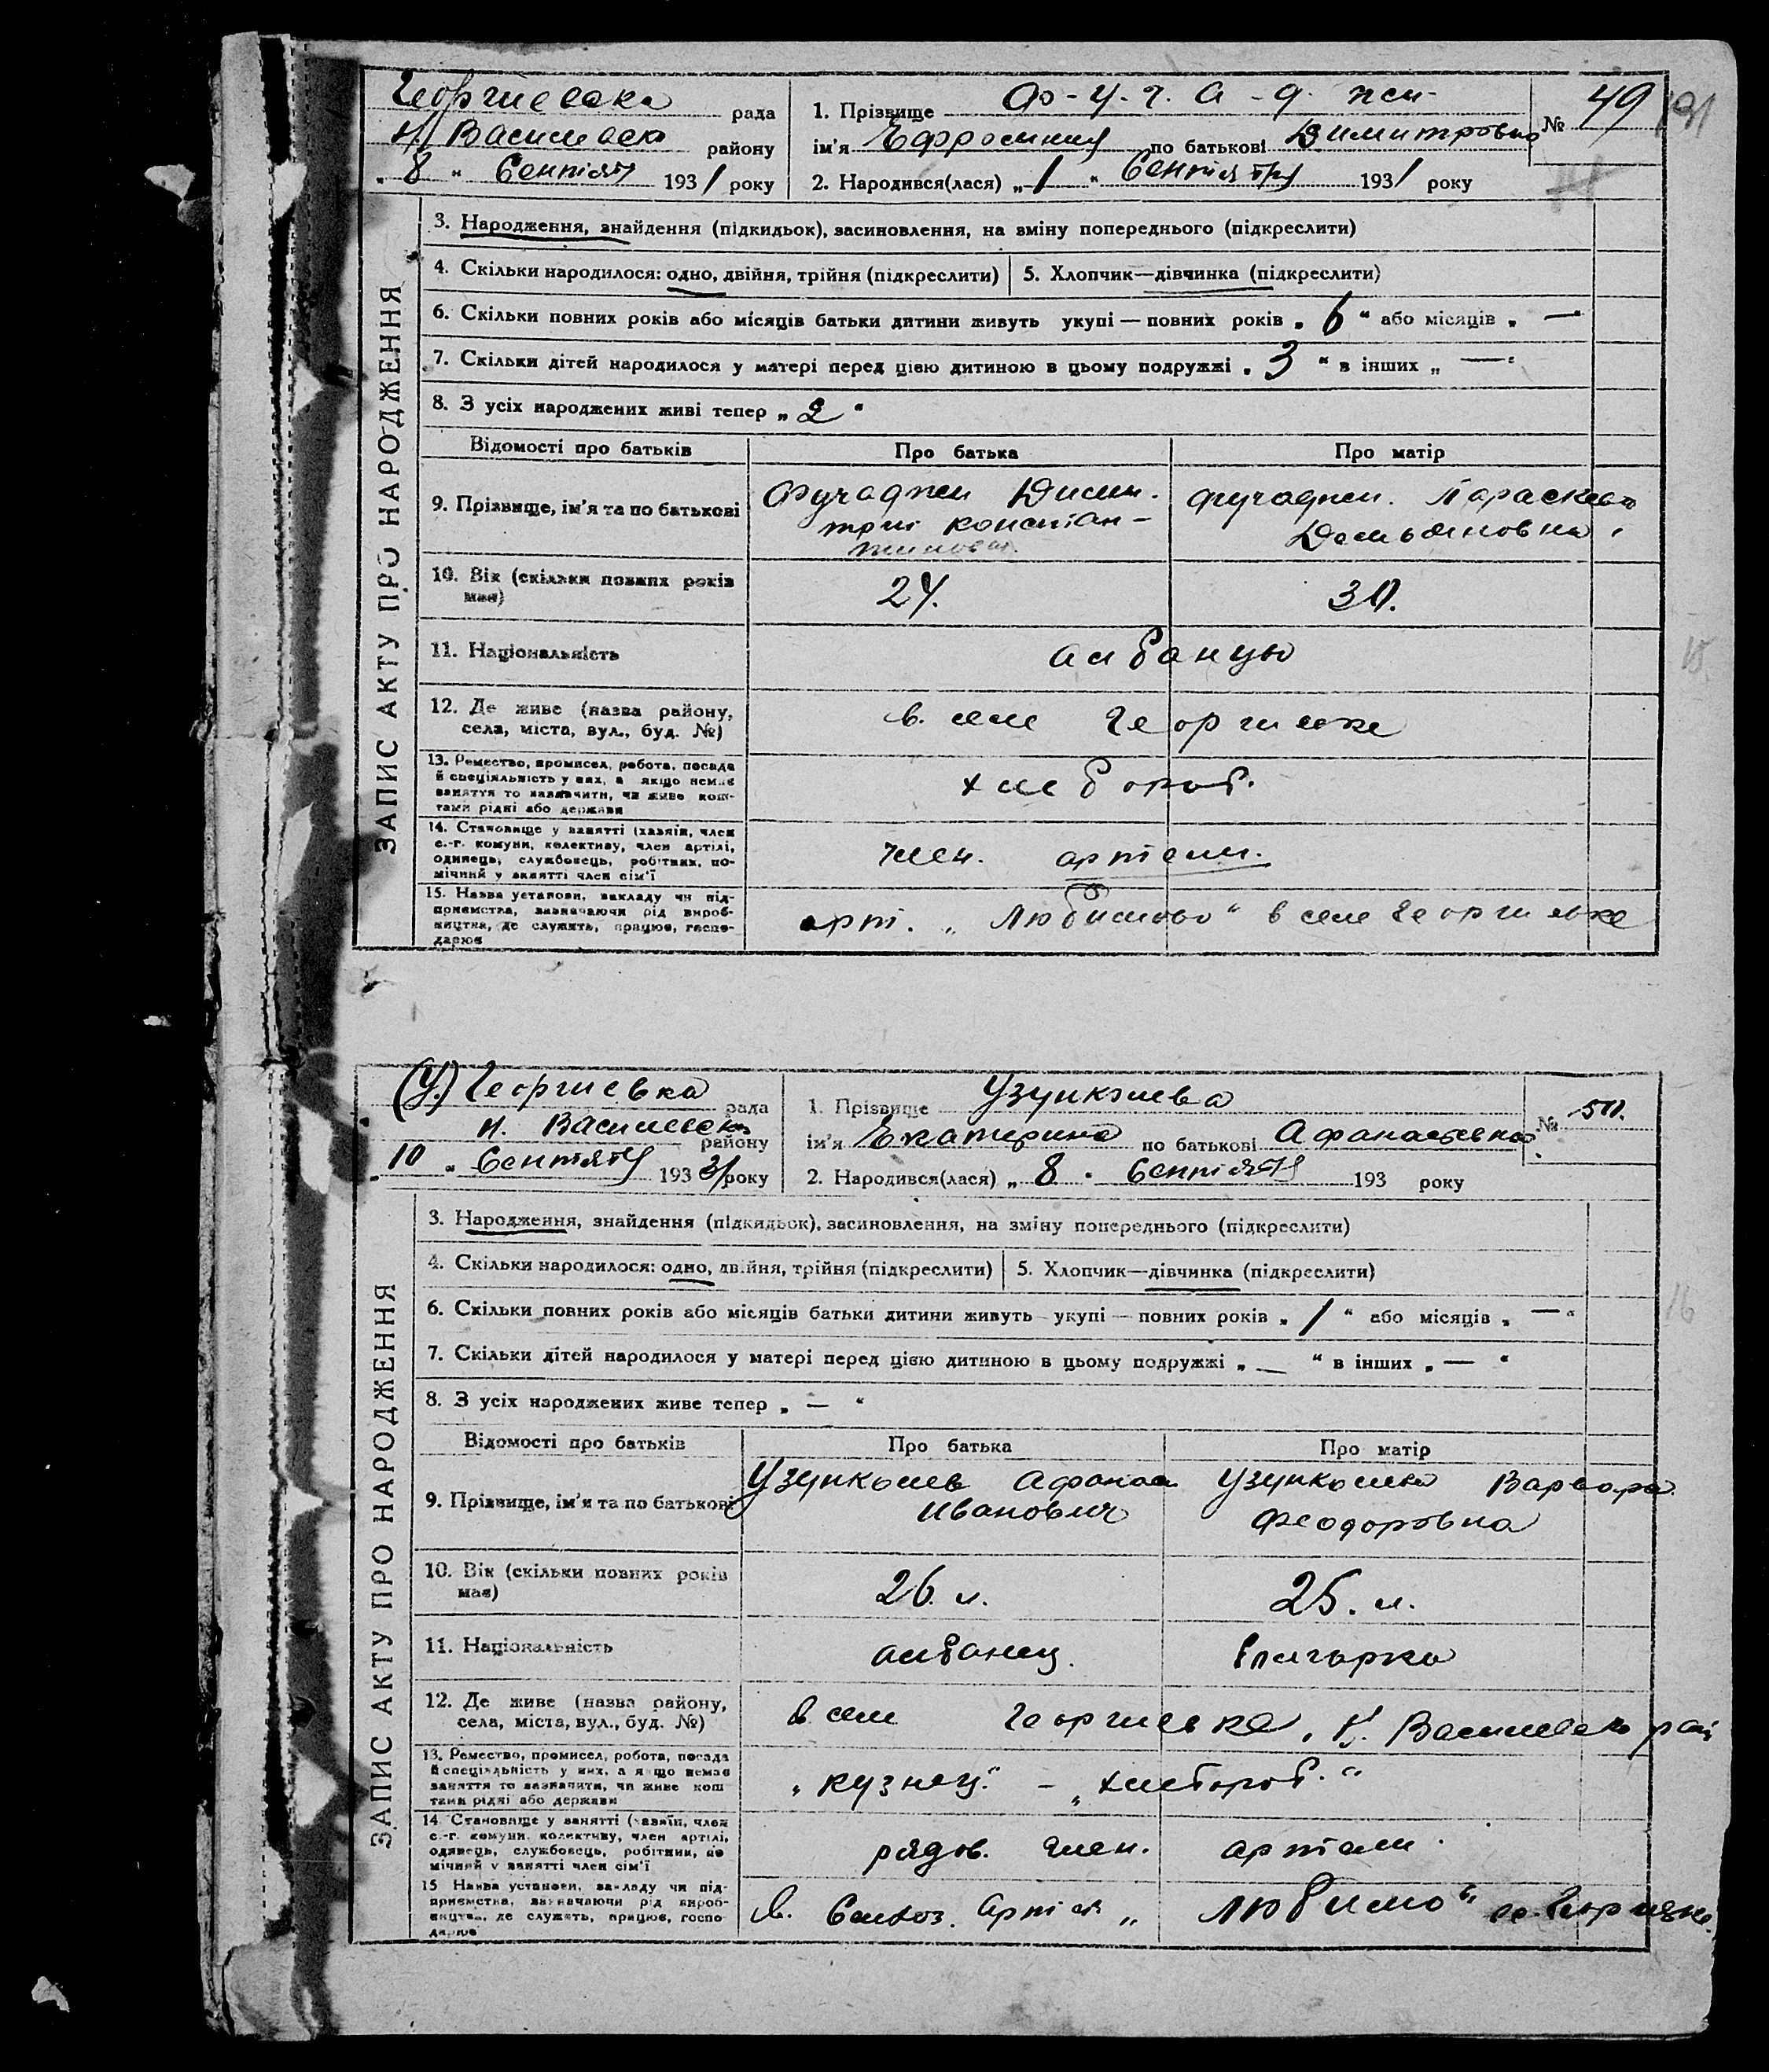 Георгиевка рада
Н/ Васильевск району
„ 8 " Сентяб 1931 року
1. Прізвище Ф-у-ч-а-д-жи-
ім'я Ефросиния по батькові Димитровна
2. Народився(лася) „ 1 " Сентября 1931 року
№ 49
191
ЗАПИС АКТУ ПРО НАРОДЖЕННЯ
3. Народження, знайдення (підкидьок), засиновлення, на зміну попереднього (підкреслити)
4. Скільки народилося: одно, двійня, трійня (підкреслити) 5. Хлопчик—дівчинка (підкреслити)
6. Скільки повних років або місяців батьки дитини живуть укупі — повних років „ 6 " або місяців „ — "
7. Скільки дітей народилося у матері перед цією дитиною в цьому подружжі „ 3 " в інших „ — "
8. З усіх народжених живі тепер „ 2 "
Відомості про батьків Про батька Про матір
9. Прізвище, ім'я та по батькові
Фучаджи Дими-
трий Констан-
тинович
Фучаджи Параскева
Демьяновна
10. Вік (скільки повних років
має)
24. 30.
11. Національність албанцы
12. Де живе (назва району,
села, міста, вул., буд. №)
в. селе Георгиевке
13. Ремество, промисел, робота, посада
й спеціяльність у них, а якщо немає
заняття то зазначити, чи живе кош-
тами рідні або держави
хлебороб.
14. Становище у занятті (хазяїн, член
с.-г. комуни, колективу, член артілі,
одинець, службовець, робітник, по-
мічний у занятті член сім'ї
член. артели.
15. Назва установи, закладу чи під-
приємства, зазначаючи рід вироб-
ництва, де служить, працює, госпо-
дарює
арт. „ Любимово " в селе Георгиевке
15.
(У.) Георгиевка рада
н. Васильевск району
„ 10 " Сентяб 1931 року
1. Прізвище Узункоиева
ім'я Екатерина по батькові Афанасьевна
2. Народився(лася) „ 8 " Сентяб 193 року
№ 50.
ЗАПИС АКТУ ПРО НАРОДЖЕННЯ
3. Народження, знайдення (підкидьок), засиновлення, на зміну попереднього (підкреслити)
4. Скільки народилося: одно, двійня, трійня (підкреслити) 5. Хлопчик—дівчинка (підкреслити)
6. Скільки повних років або місяців батьки дитини живуть укупі — повних років „ 1 " або місяців „ — "
7. Скільки дітей народилося у матері перед цією дитиною в цьому подружжі „ — " в інших „ — "
8. З усіх народжених живе тепер „ — "
Відомості про батьків Про батька Про матір
9. Прізвище, ім'я та по батькові
Узункоиев Афанас
Иванович
Узункоиева Варвара
Феодоровна
10. Вік (скільки повних років
має)
26. л. 25. л.
11. Національність албанец. болгарка
12. Де живе (назва району,
села, міста, вул., буд. №)
в селе Георгиевке, Н. Васильевск рай
13. Ремество, промисел, робота, посада
й спеціяльність у них, а якщо немає
заняття то зазначити, чи живе кош
тами рідні або держави
„ кузнец." - „ хлебороб. "
14 Становище у занятті (хазяїн, член
с.-г. комуни, колективу, член артілі,
одинець, службовець, робітник, по
мічний у занятті член сім'ї
рядов. член. артели.
15 Назва установи, закладу чи під-
приємства, зазначаючи рід вироб-
ництва, де служить, працює, госпо-
дарює
в. Сельхоз. Артел „ Любимо " с. Георгиевке
16